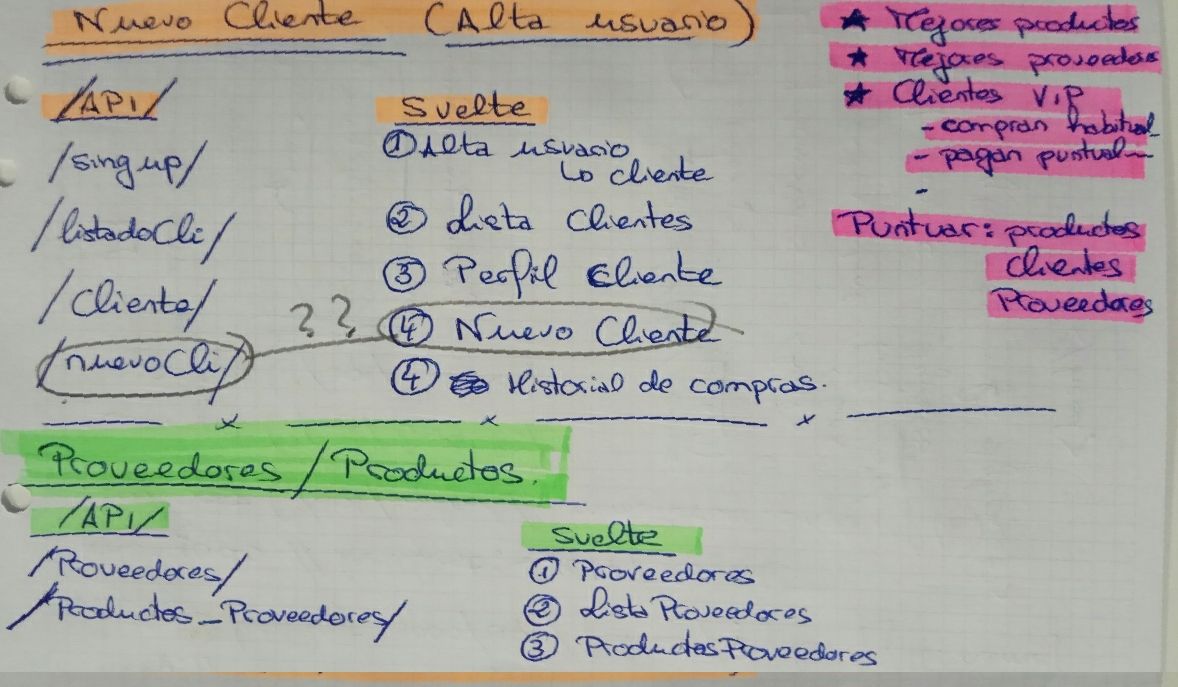 Nuevo Cliente (Alta usuario)
/API/
/sing up/
/listadoCli/
/Cliente/
/nuevoCli/
??
Svelte
① Alta usuario
Lo cliente
② Lista Clientes
③ Perfil Cliente
④ Nuevo Cliente
④ Historial de compras.
★ Mejores productos
★ Mejores proveedores
★ Clientes VIP
- compran habitual
- pagan puntual
-
Puntuar: productos
Clientes
Proveedores
Proveedores / Productos.
/API/
/Proveedores/
/Productos_Proveedores/
Svelte
① Proveedores
② Lista Proveedores
③ ProductosProveedores